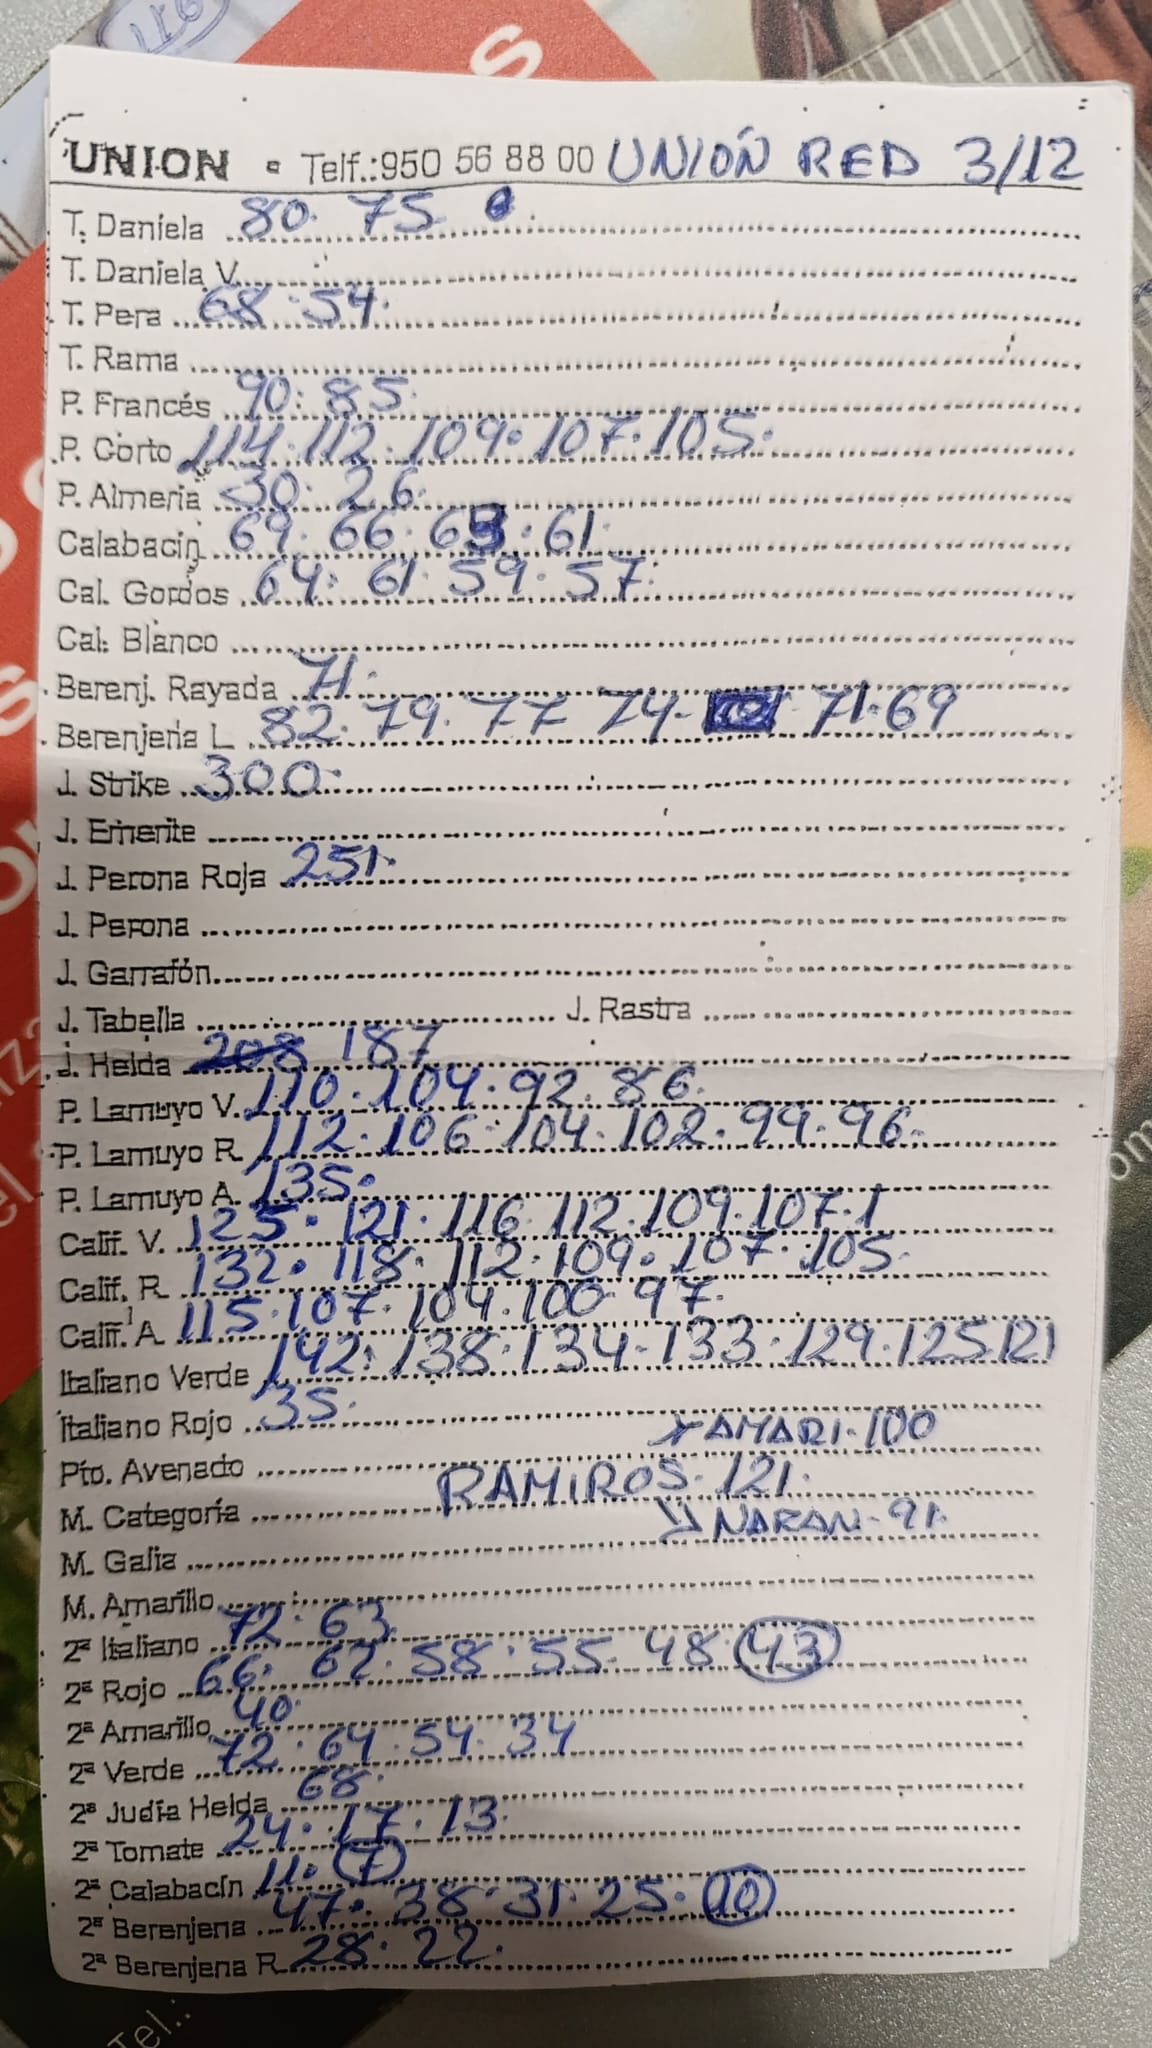 UNION • Telf.:950 56 88 00 UNIÓN RED 3/12
T. Daniela 80. 75
T. Daniela V.
T. Pera 68. 54.
T. Rama
P. Francés 90. 85.
P. Corto 114. 112. 109. 107. 105.
P. Almeria 30. 26.
Calabacin 69. 66. 63. 61.
Cal. Gordos 64. 61. 59. 57.
Cal. Blanco
Berenj. Rayada 71.
Berenjena L 82. 79. 77 74. 71. 69
J. Strike 300.
J. Emerite
J. Perona Roja 251.
J. Perona
J. Garrafón
J. Tabella J. Rastra
J. Helda 208 187
P. Lamuyo V. 110. 104. 92. 86.
P. Lamuyo R. 112. 106. 104. 102. 99. 96.
P. Lamuyo A. 135.
Calif. V. 125. 121. 116. 112. 109. 107. 1
Calif. R. 132. 118. 112. 109. 107. 105.
Calif. A. 115. 107. 104. 100. 97.
Italiano Verde 142. 138. 134. 133. 129. 125. 121
Italiano Rojo 35.
AMARI. 100
Pto. Avenado
RAMIROS. 121.
M. Categoría
NARAN. 91.
M. Galia
M. Amarillo
2ª Italiano 72. 63
2ª Rojo 66. 62. 58. 55. 48. 43
2ª Amarillo 40.
2ª Verde 72. 64. 54. 34
2ª Judía Helda 68.
2ª Tomate 24. 17. 13.
2ª Calabacín 11. 7
2ª Berenjena 47. 38. 31. 25. 10
2ª Berenjena R. 28. 22.
Tel.: